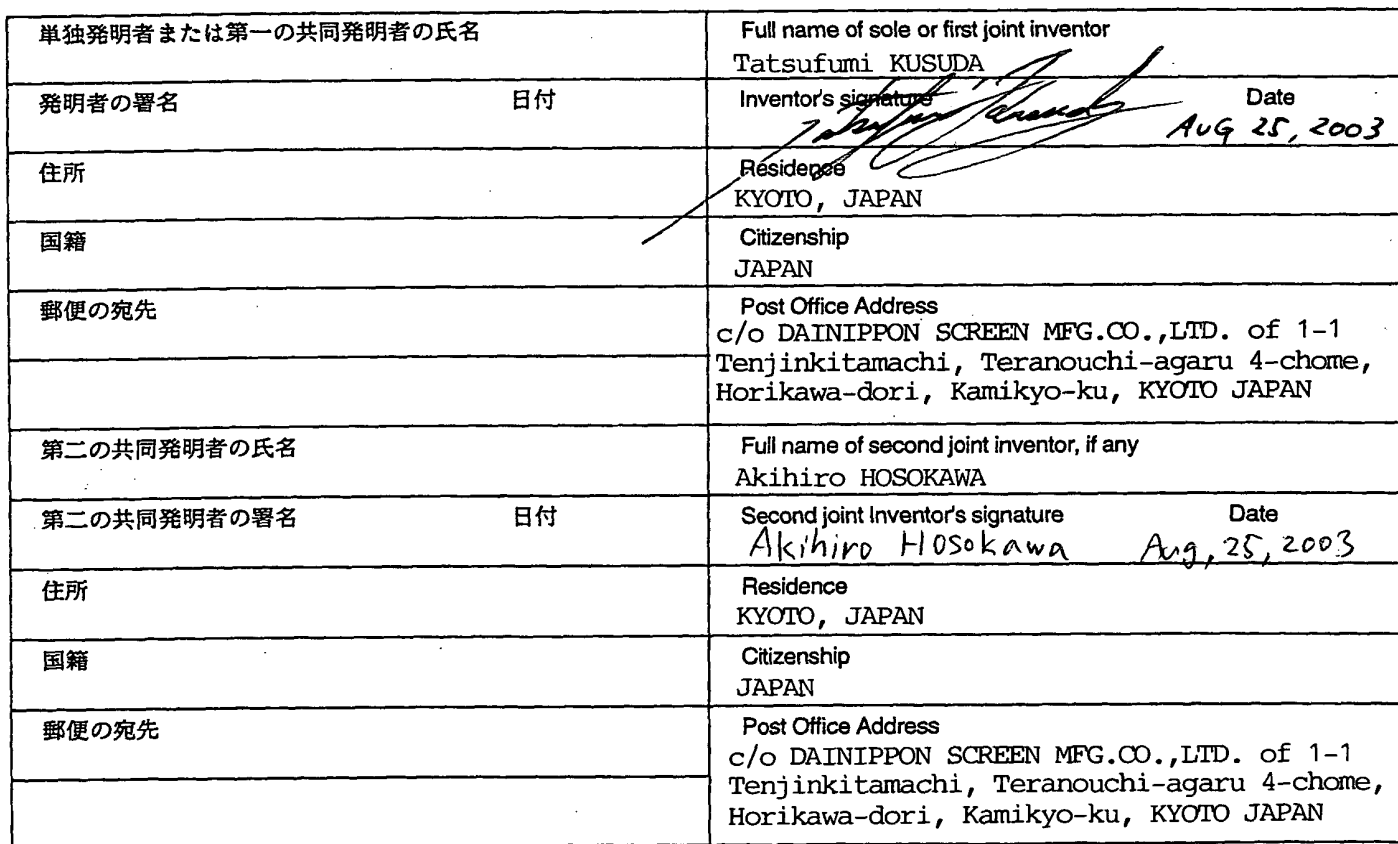 単独発明者または第一の共同発明者の氏名
Full name of sole or first joint inventor
Tatsufumi KUSUDA
発明者の署名 日付
Inventor's signature Date
AUG 25, 2003
住所
Residence
KYOTO, JAPAN
国籍
Citizenship
JAPAN
郵便の宛先
Post Office Address
c/o DAINIPPON SCREEN MFG.CO.,LTD. of 1-1
Tenjinkitamachi, Teranouchi-agaru 4-chome,
Horikawa-dori, Kamikyo-ku, KYOTO JAPAN
第二の共同発明者の氏名
Full name of second joint inventor, if any
Akihiro HOSOKAWA
第二の共同発明者の署名 日付
Second joint Inventor's signature Date
Akihiro Hosokawa Aug, 25, 2003
住所
Residence
KYOTO, JAPAN
国籍
Citizenship
JAPAN
郵便の宛先
Post Office Address
c/o DAINIPPON SCREEN MFG.CO.,LTD. of 1-1
Tenjinkitamachi, Teranouchi-agaru 4-chome,
Horikawa-dori, Kamikyo-ku, KYOTO JAPAN